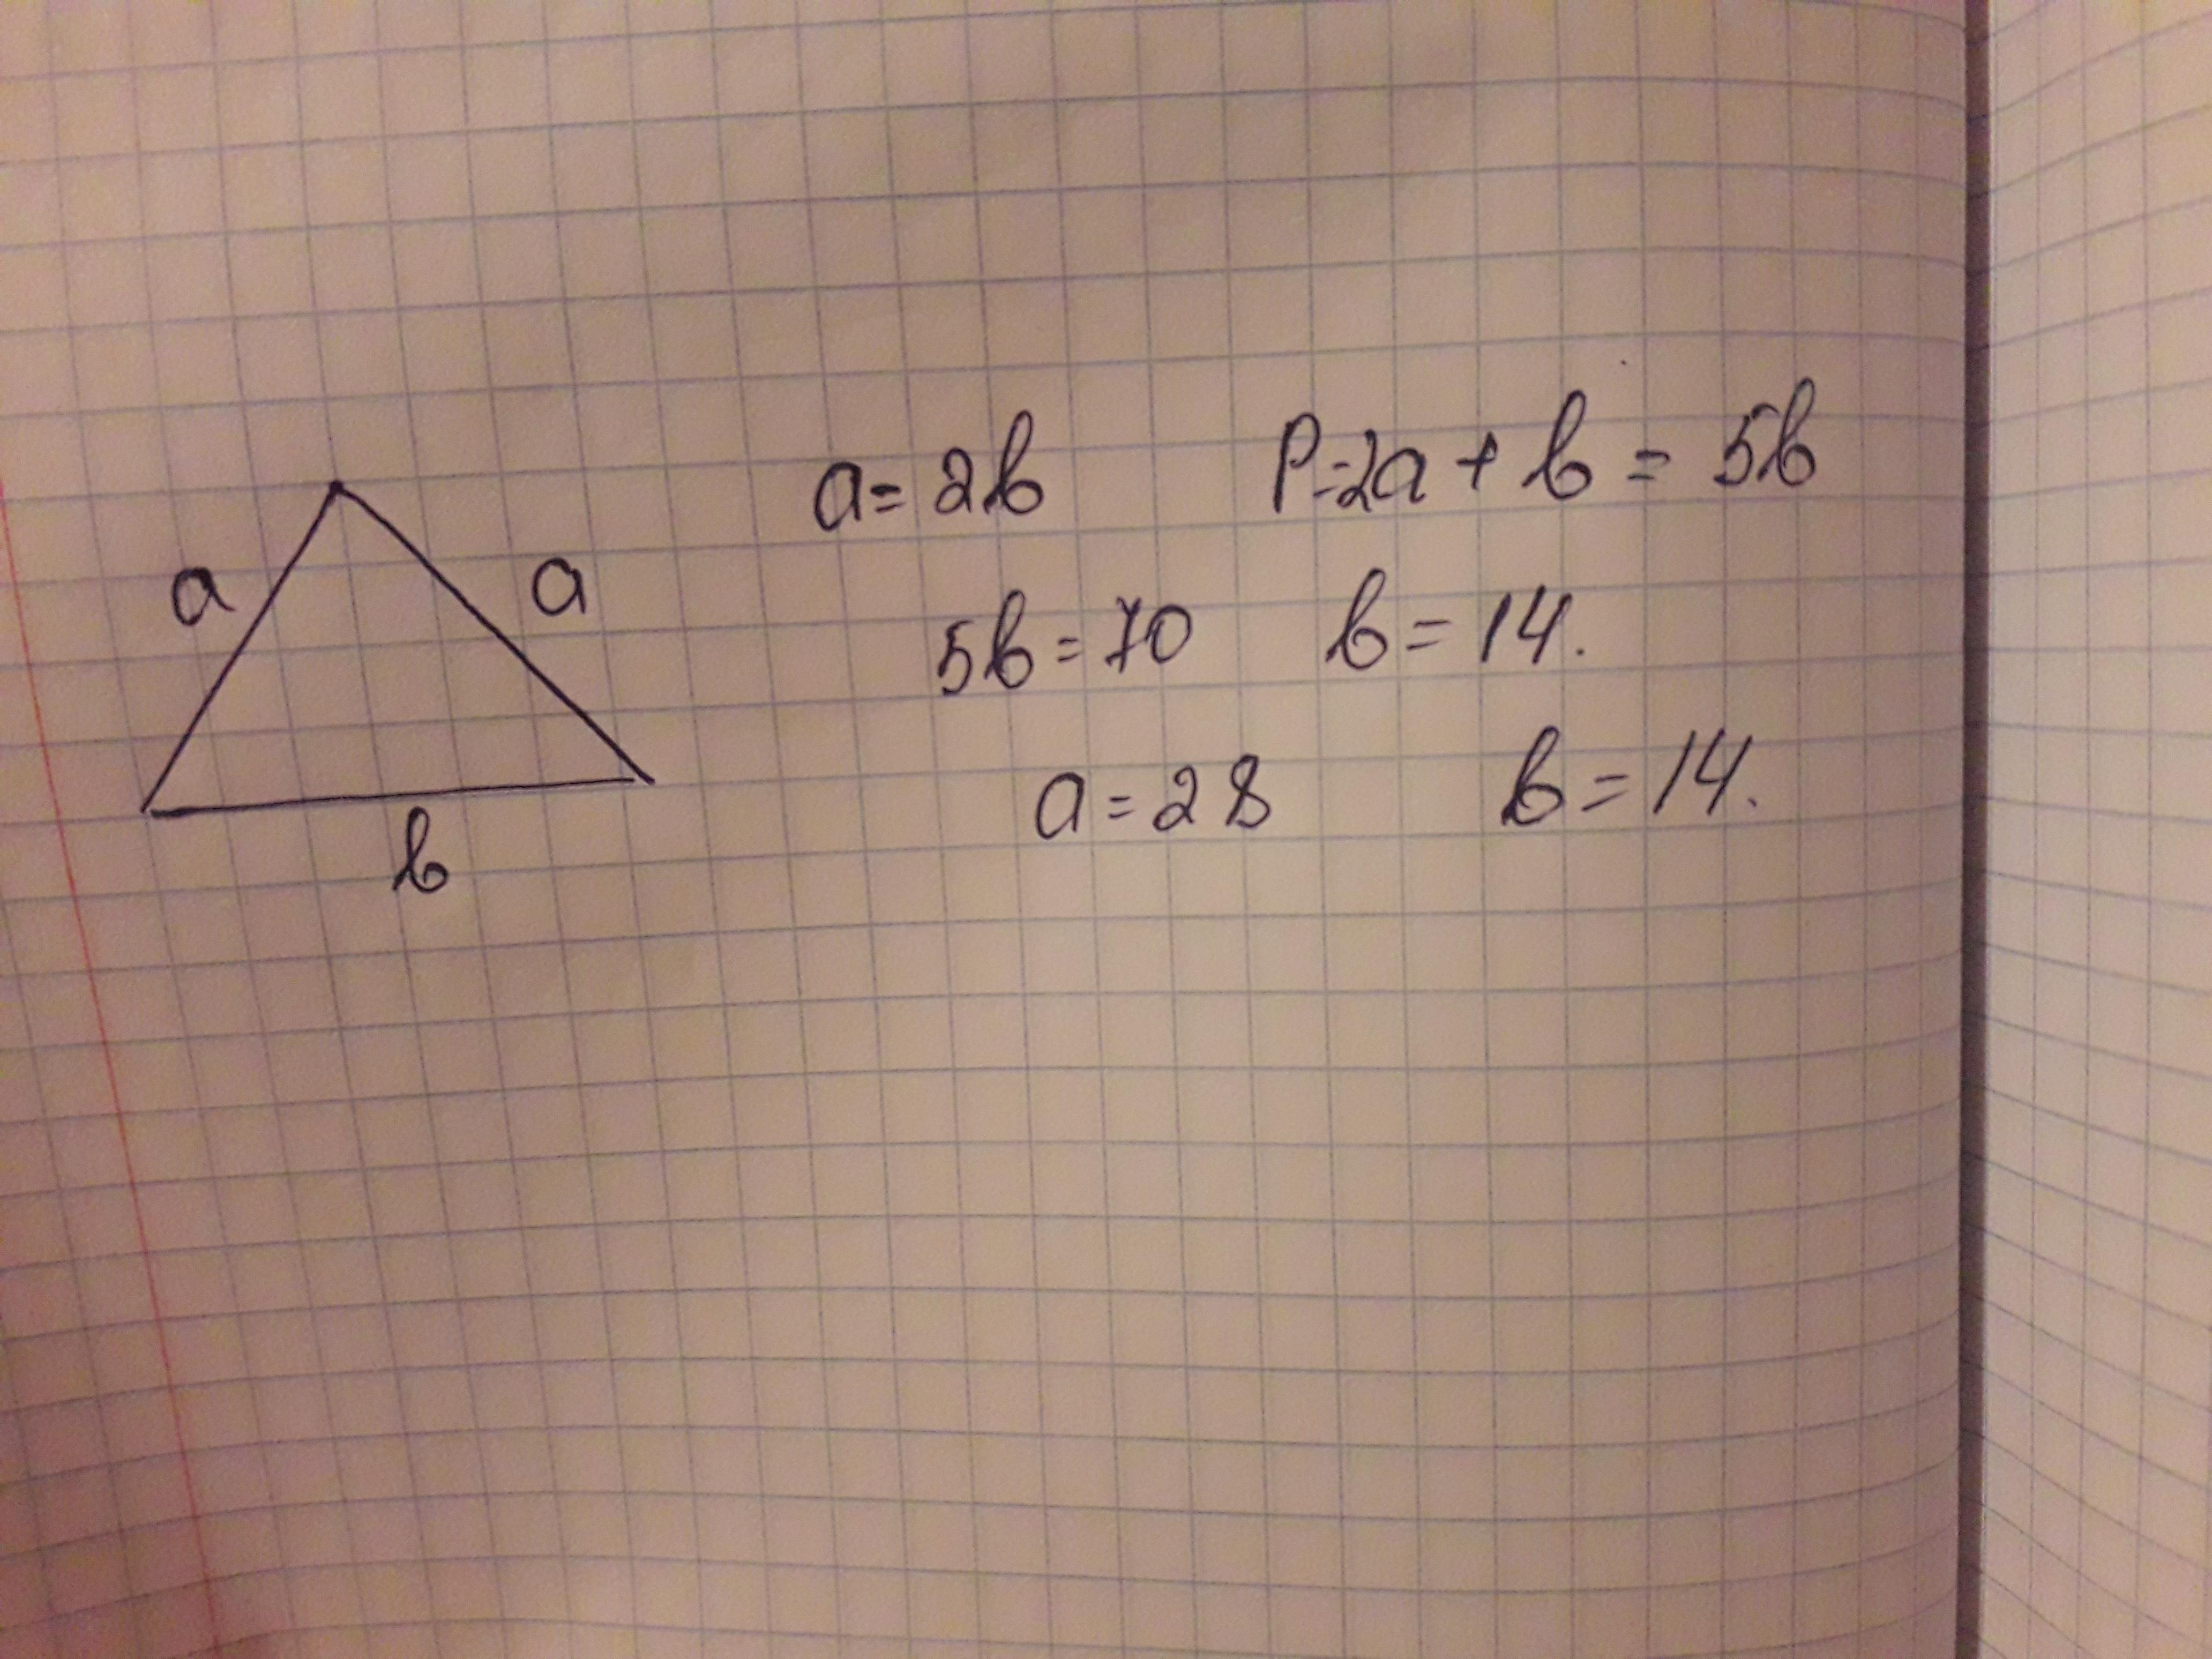 a = 2b P = 2a + b = 5b
a a
5b = 70 b = 14.
a = 28 b = 14.
b